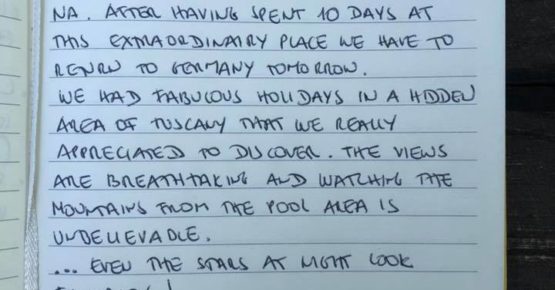 NA. AFTER HAVING SPENT 10 DAYS AT
THIS EXTRAORDINAIRY PLACE WE HAVE TO
RENRN TO GERMANY TOMORROW.
WE HAD FABULOUS HOLIDAYS IN A HIDDEN
AREA OF TUSCANY THAT WE REALLY
APPRECIATED TO DISCOVER. THE VIEWS
ARE BREATHTAKING AND WATCHING THE
MOUNTAINS FROM THE POOL AREA IS
UNBELIEVABLE.
... EVEN THE STARS AT NIGHT LOOK